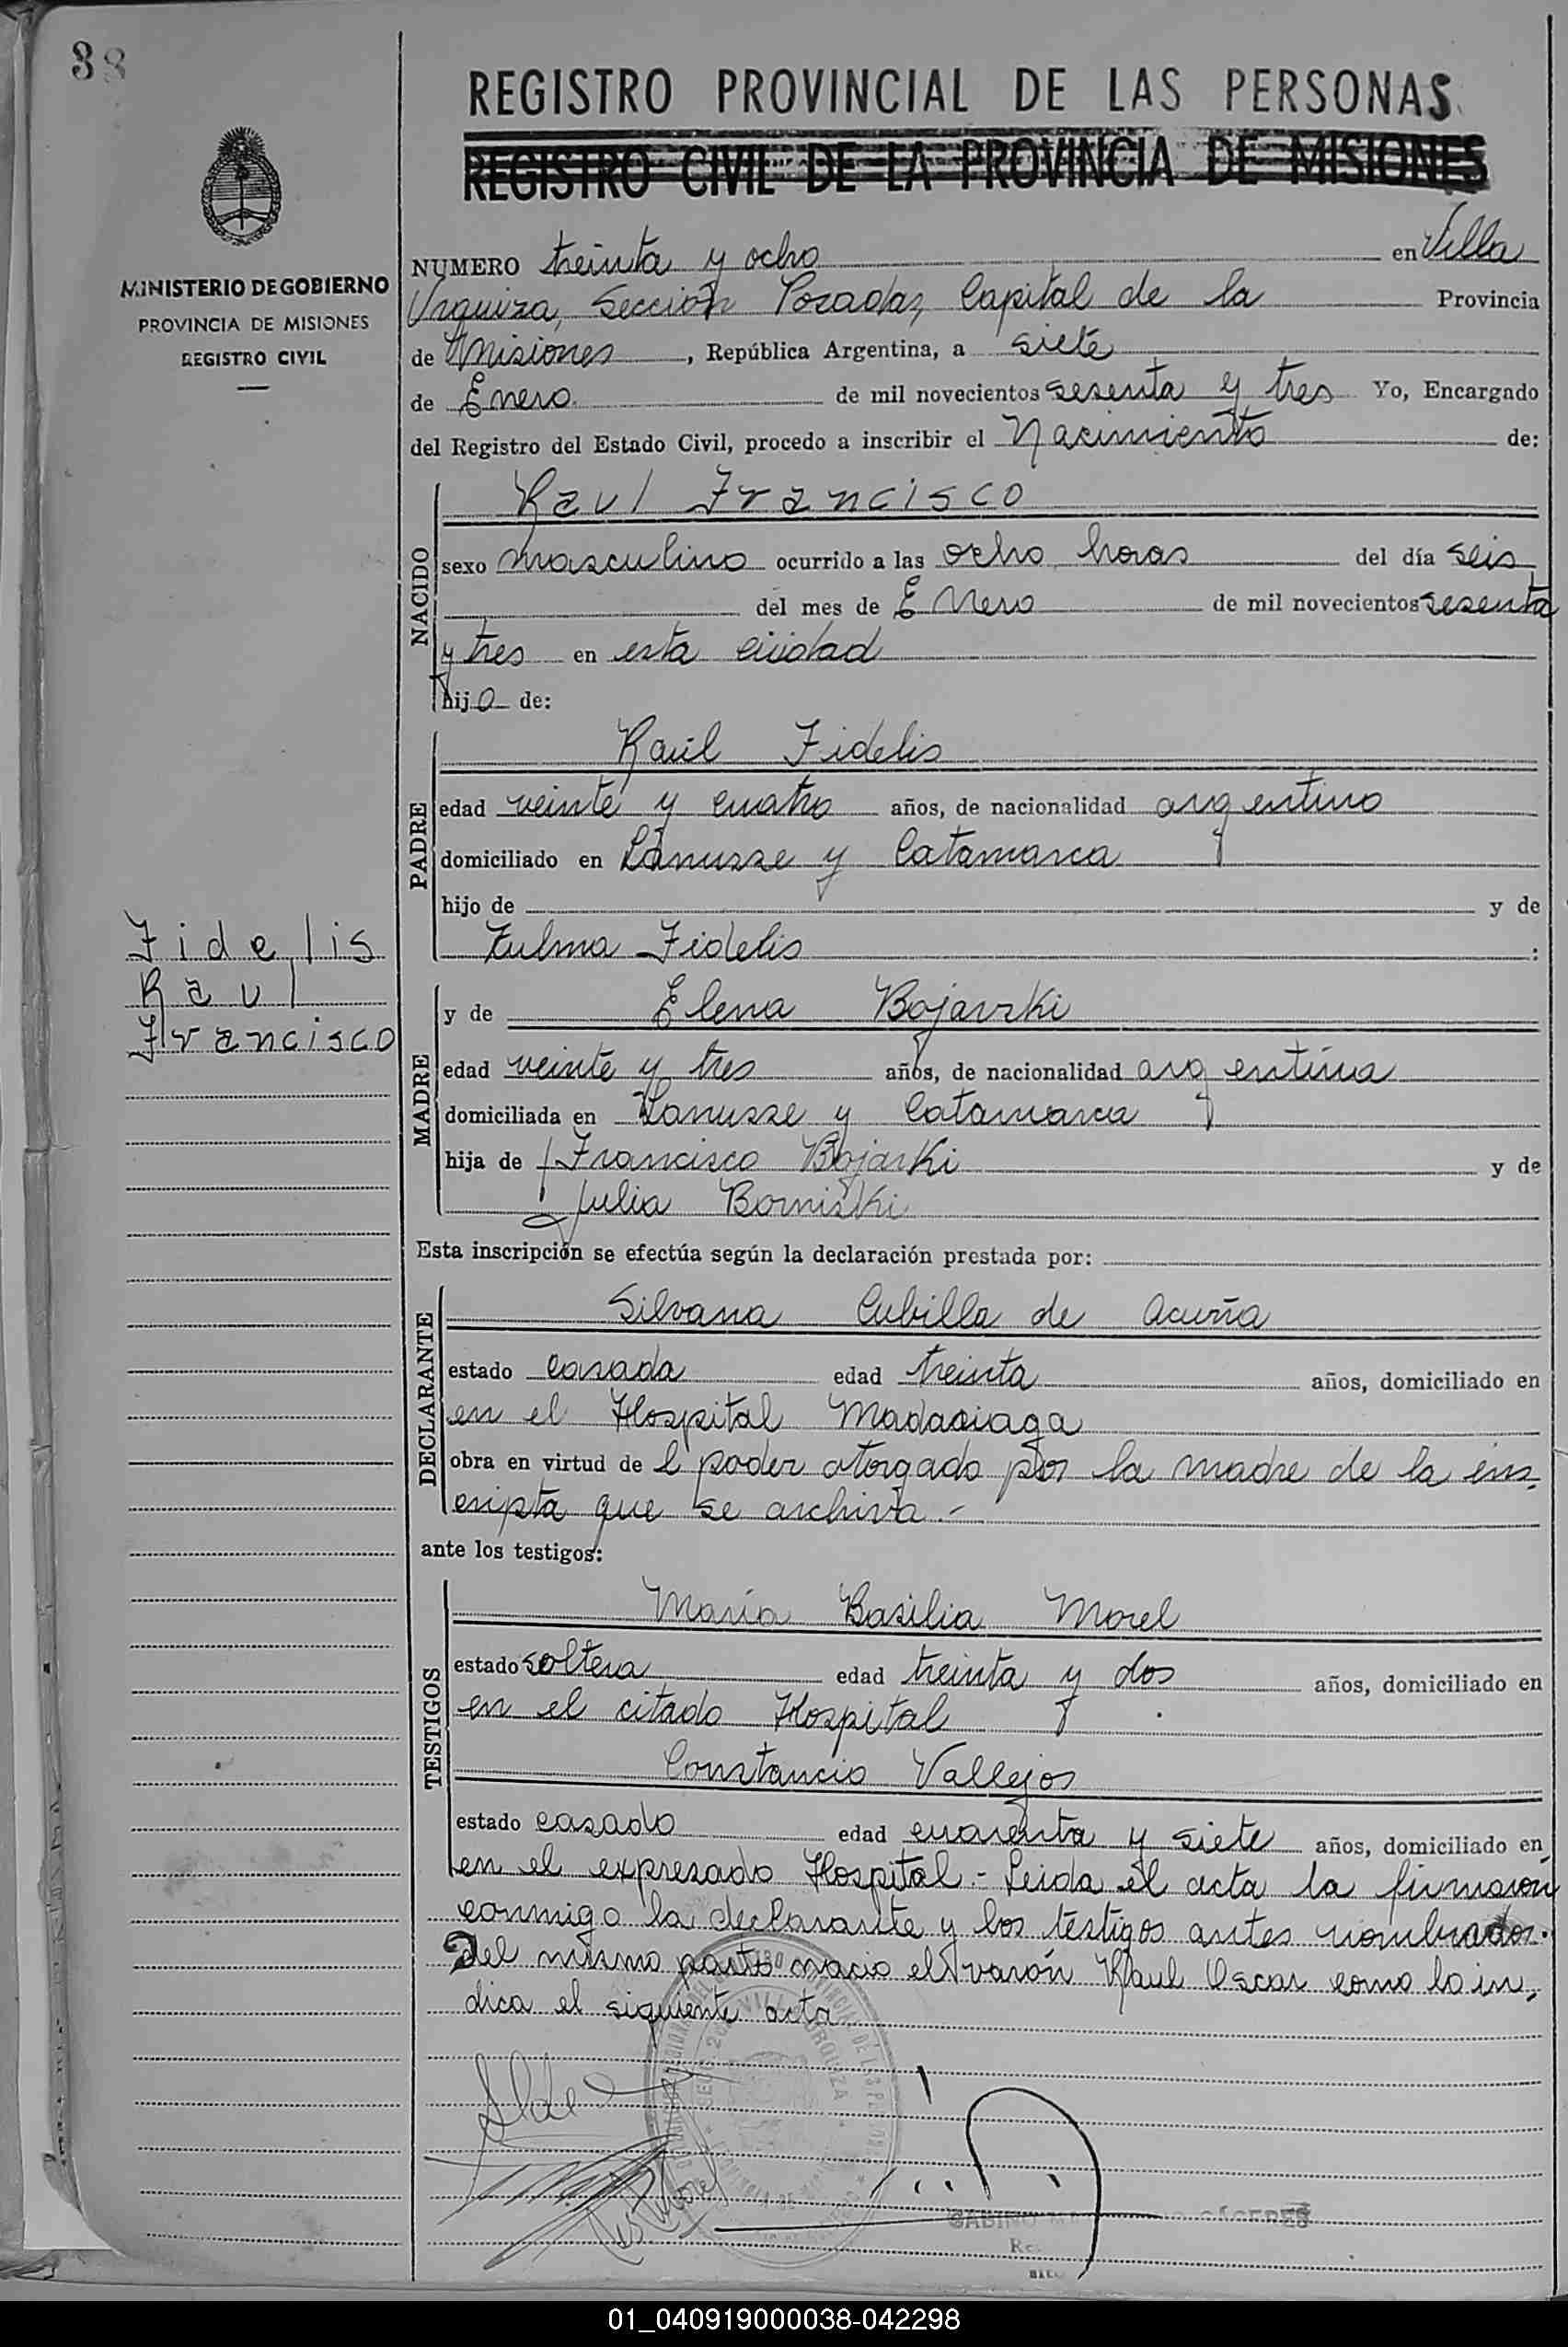 38
REGISTRO PROVINCIAL DE LAS PERSONAS
REGISTRO CIVIL DE LA PROVINCIA DE MISIONES
MINISTERIO DE GOBIERNO
PROVINCIA DE MISIONES
REGISTRO CIVIL
NUMERO treinta y ocho en Villa
Urquiza, Sección Posadas, Capital de la Provincia
de Misiones, República Argentina, a siete
de Enero de mil novecientos sesenta y tres Yo, Encargado
del Registro del Estado Civil, procedo a inscribir el Nacimiento de:
NACIDO
Raul Francisco
sexo masculino ocurrido a las ocho horas del día seis
del mes de Enero de mil novecientos sesenta
y tres en esta ciudad
hijo de:
PADRE
Raúl Fidelis
edad veinte y cuatro años, de nacionalidad argentino
domiciliado en Lanusse y Catamarca
hijo de y de
Zulma Fidelis :
Fidelis
Raul
Francisco
MADRE
y de Elena Bojarski
edad veinte y tres años, de nacionalidad argentina
domiciliada en Lanusse y Catamarca
hija de Francisco Bojarki y de
Julia Borniski
Esta inscripción se efectúa según la declaración prestada por:
DECLARANTE
Silvana Cubilla de Acuña
estado casada edad treinta años, domiciliado en
en el Hospital Madariaga
obra en virtud de l poder otorgado por la madre de la ins-
cripta que se archiva.-
ante los testigos:
TESTIGOS
María Basilia Morel
estado soltera edad treinta y dos años, domiciliado en
en el citado Hospital
Constancio Vallejos
estado casado edad cuarenta y siete años, domiciliado en
en el expresado Hospital.- Leida el acta la firmaron
conmigo la declarante y los testigos antes nombrados.
Del mismo parto nacio el varón Raul Oscar como lo in-
dica el siguiente acta
01_040919000038-042298